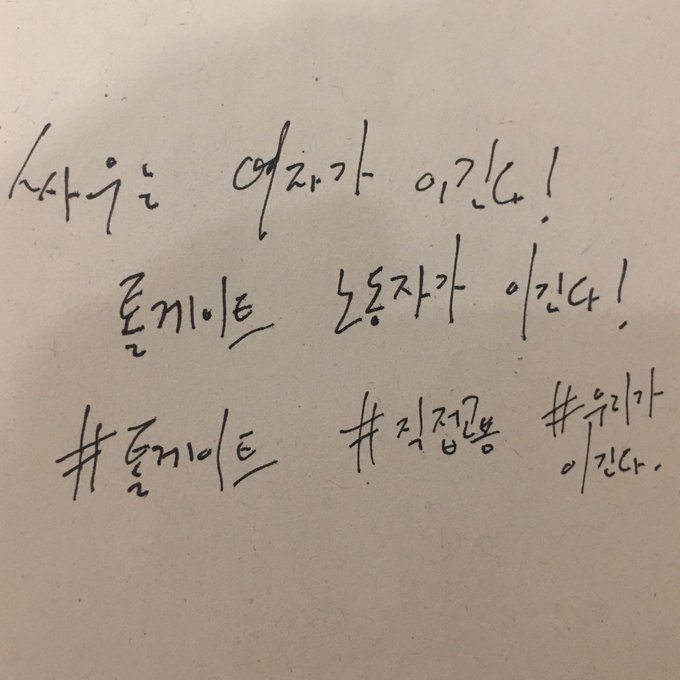 싸우는 여자가 이긴다!
톨게이트 노동자가 이긴다!
#톨게이트 #직접고용 #우리가
이긴다.